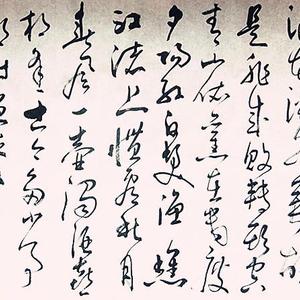 是非成敗轉頭空
青山依舊在幾度
夕陽紅白髮漁樵
江渚上慣看秋月
春風一壺濁酒喜
相逢古今多少事